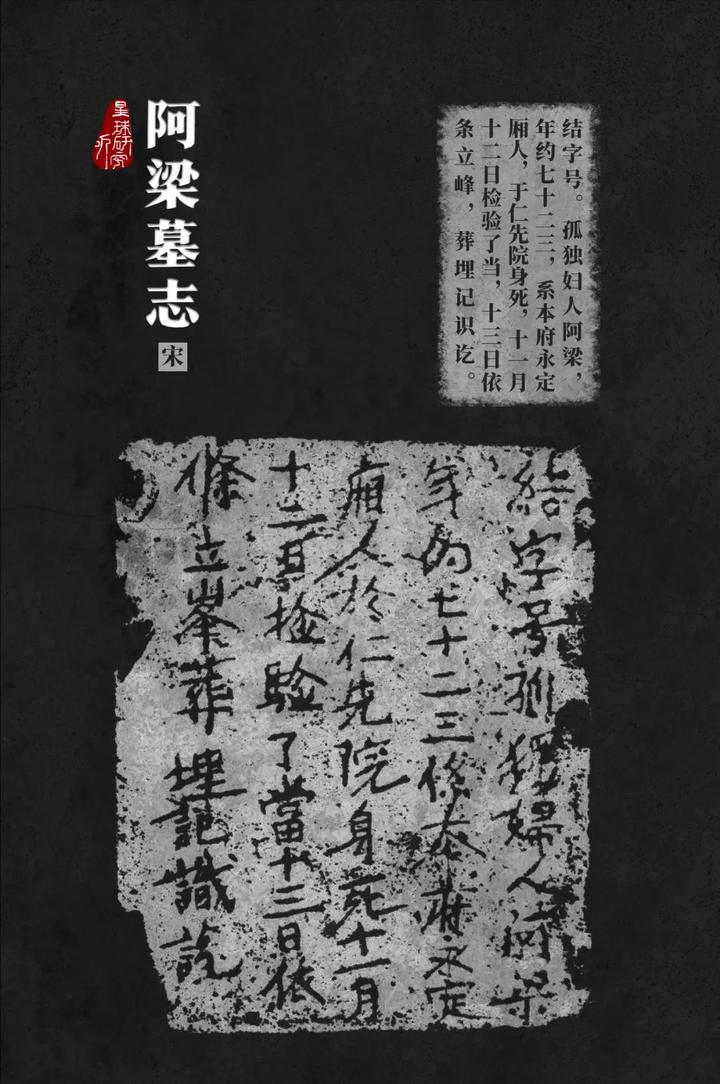 结字号。孤独妇人阿梁，
年约七十二三，系本府永定
厢人，于仁先院身死，十一月
十二日检验了当，十三日依
条立峰，葬埋记识讫。
阿梁墓志
宋
星球研究所
結字号孤獨婦人阿梁
年约七十二三係本府永定
廂人於仁先院身死十一月
十二日捡驗了當十三日依
條立峯葬埋記識訖